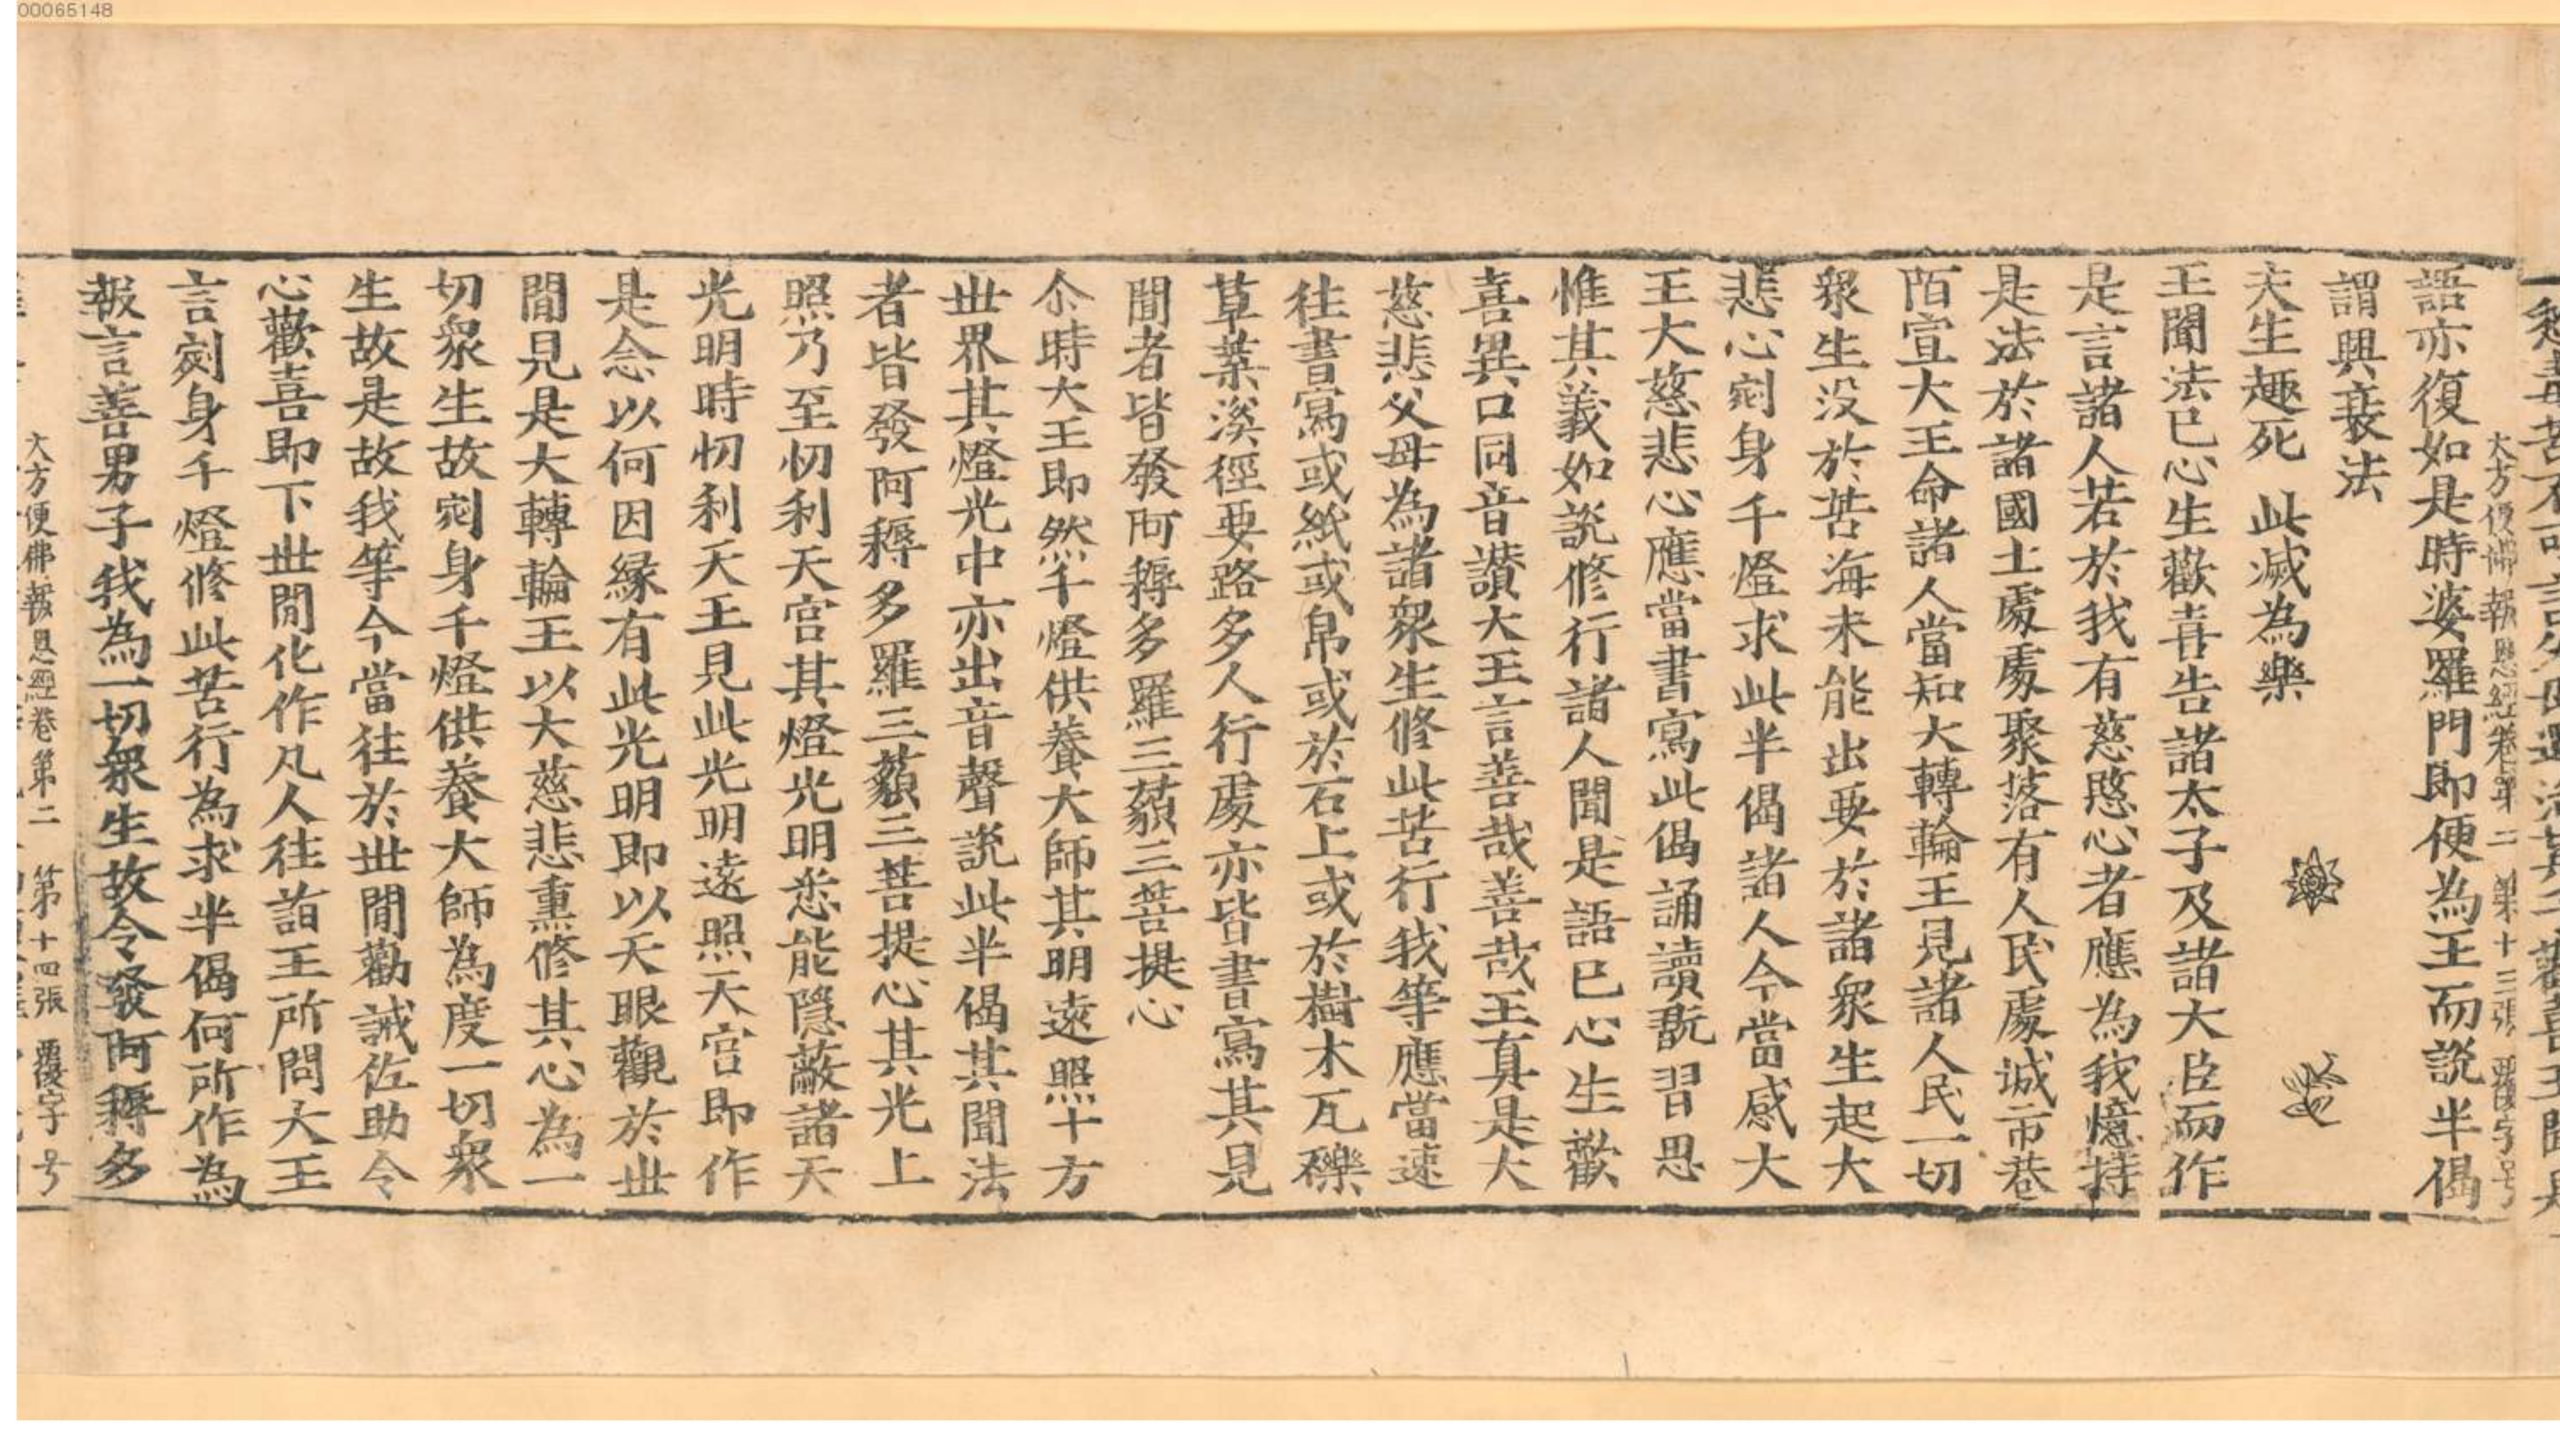 00065148
大方便佛報恩經卷第二 第十三張 覆字号
語亦復如是時婆羅門即便為王而説半偈
謂興衰法
夫生趣死 此滅為樂
王聞法已心生歡喜告諸太子及諸大臣而作
是言諸人若於我有慈愍心者應為我憶持
是法於諸國土處處聚落有人民處城市巷
陌宣大王命諸人當知大轉輪王見諸人民一切
衆生没於苦海未能出要於諸衆生起大
悲心剜身千燈求此半偈諸人今當感大
王大慈悲心應當書寫此偈誦讀翫習思
惟其義如説修行諸人聞是語已心生歡
喜異口同音讃大王言善哉善哉王真是大
慈悲父母為諸衆生修此苦行我等應當速
往書寫或紙或帛或於石上或於樹木瓦礫
草葉溪徑要路多人行處亦皆書寫其見
聞者皆發阿耨多羅三藐三菩提心
尒時大王即然千燈供養大師其明遠照十方
世界其燈光中亦出音聲説此半偈其聞法
者皆發阿耨多羅三藐三菩提心其光上
照乃至忉利天宮其燈光明悉能隱蔽諸天
光明時忉利天王見此光明遠照天宮即作
是念以何因縁有此光明即以天眼觀於世
間見是大轉輪王以大慈悲熏修其心為一
切衆生故剜身千燈供養大師為度一切衆
生故是故我等今當往於世間勸誡佐助令
心歡喜即下世間化作凡人往詣王所問大王
言剜身千燈修此苦行為求半偈何所作為
報言善男子我為一切衆生故令發阿耨多
大方便佛報恩經卷第二 第十四張 覆字号